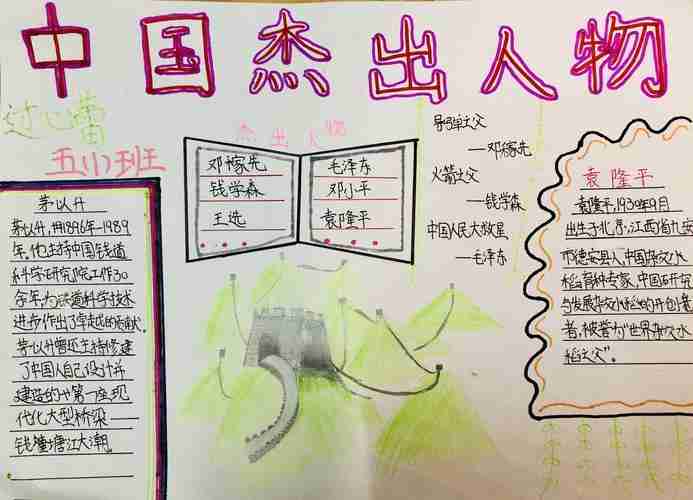 中国杰出人物
过心蕾
五(1)班
杰出人物
邓稼先
钱学森
王选
毛泽东
邓小平
袁隆平
导弹之父
——邓稼先
火箭之父
——钱学森
中国人民大救星
——毛泽东
茅以升
茅以升,用1896年-1989
年,他主持中国铁道
科学研究院工作30
余年,为铁道科学技术
进步作出了卓越的贡献。
茅以升曾还主持修建
了中国人自己设计并
建造的第一座现
代化大型桥梁——
钱塘江大潮
袁隆平
袁隆平,1930年9月
出生于北京,江西省九安
市德安县人,中国杂交水
稻育种专家,中国研究
与发展杂交水稻的开创者
者,被誉为“世界杂交水
稻之父”。